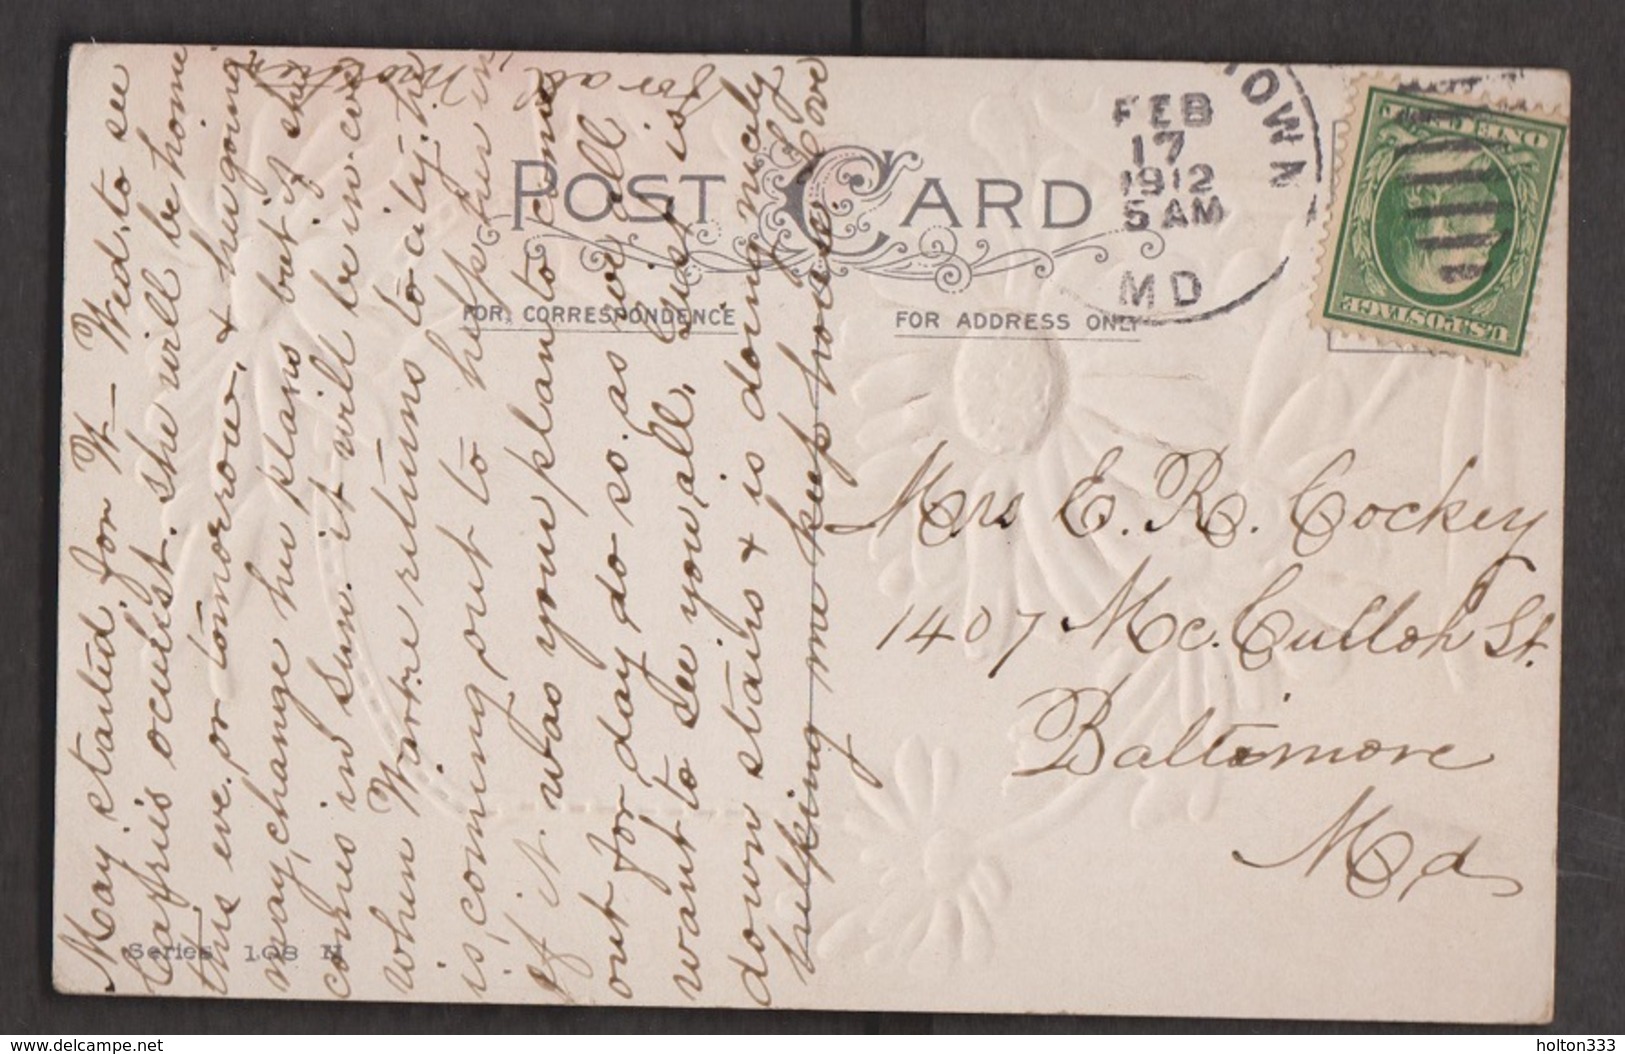 POST CARD
FOR CORRESPONDENCE
FOR ADDRESS ONLY
TOWN
FEB
17
1912
5 AM
MD
ONE CENT
U.S. POSTAGE
Mrs E. R. Cockey
1407 McCulloh St.
Baltimore
Md
May started for W- Wed, to see
occulist. She will be home
this eve. or tomorrow, & hugoing
may change her plans but if she
comes in Sun. it will be in eve
when returns to city. 
is coming out to help her in
If it was your plan to come
out for day do so. as we all
want to see you all. Suist is
down stairs & is doing nicely
helping me keep house. Love
for all
Mother
Series 108 N
www.delcampe.net
holton333